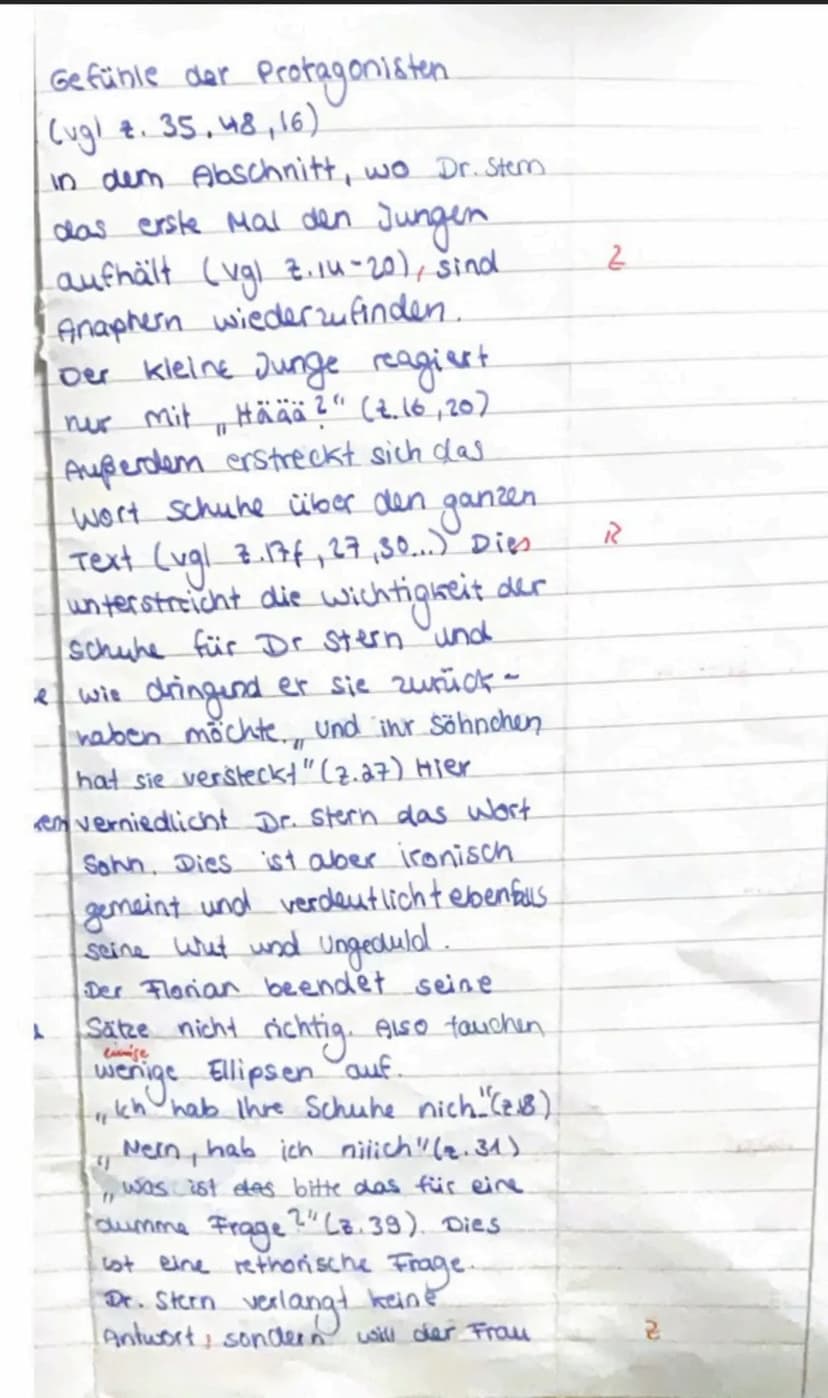 Gefühle der Protagonisten
(vgl z. 35, 48, 16)
in dem Abschnitt, wo Dr. Stern
das erste Mal den Jungen
aufhält (vgl z. 14-20), sind Z
Anaphern wiederzufinden.
Der kleine Junge reagiert
nur mit „Häää?" (z. 16, 20)
Außerdem erstreckt sich das
Wort schuhe über den ganzen
Text (vgl z. 17f, 27, 30...) Dies R
unterstreicht die wichtigkeit der
schuhe für Dr Stern und
e wie dringend er sie zurück-
haben möchte. „und ihr Söhnchen
hat sie versteckt" (z. 27) Hier
verniedlicht Dr. Stern das Wort
Sohn. Dies ist aber ironisch
gemeint und verdeutlicht ebenfalls
seine Wut und Ungeduld.
Der Florian beendet seine
Sätze nicht richtig. Also tauchen
einige
wenige Ellipsen auf.
„Ich hab Ihre Schuhe nich" (z. 18)
„Nein, hab ich niiich" (z. 31)
„was ist das bitte das für eine
dumme Frage?" (z. 39). Dies
ist eine rethorische Frage.
Dr. Stern verlangt keine
Antwort, sondern will der Frau Z